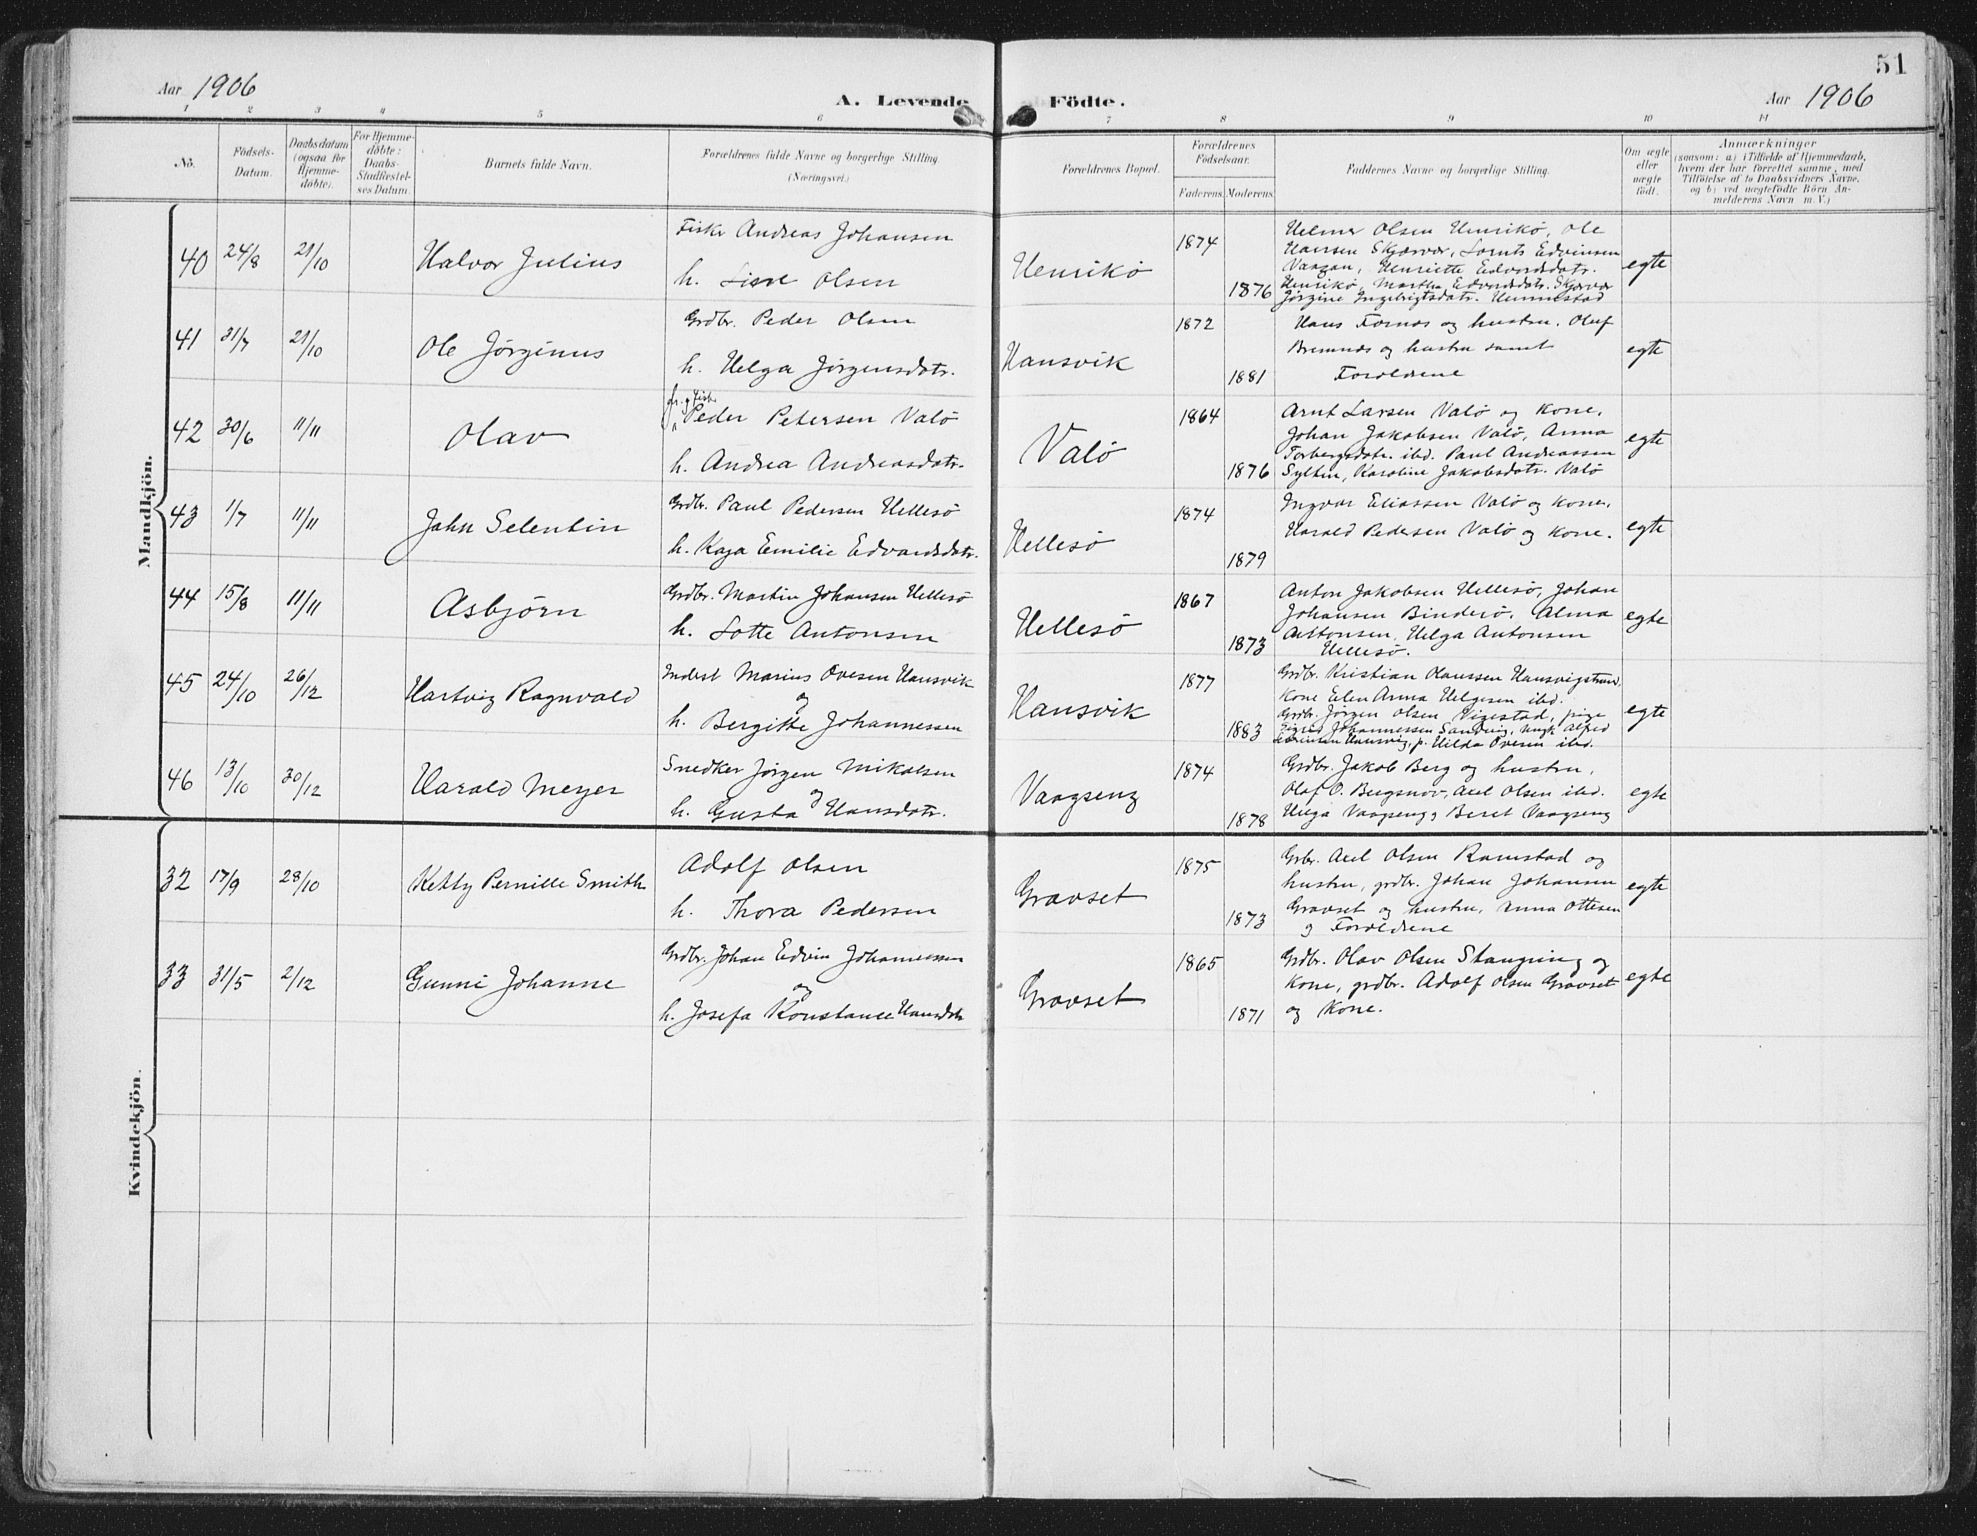 51
Aar 1906
A. Levende Födte.
Aar 1906
1 2 3 4 5 6 7 8 9 10 11
No.
Födsels-Datum.
Daabsdatum (ogsaa for Hjemme-döbte).
For Hjemme-döbte: Daabs-Stadfæstel-ses Datum.
Barnets fulde Navn.
Forældrenes fulde Navne og borgerlige Stilling
(Næringsvei.)
Forældrenes Bopæl.
Forældrenes Födselsaar.
Faderens. Moderens.
Faddernes Navne og borgerlige Stilling.
Om ægte eller uægte födt.
Anmærkninger
(saasom: a) i Tilfælde af Hjemmedaab,
hvem der har forrettet samme, med
Tilföielse af to Daabsvidners Navne,
og b) ved uægtefödte Börn An-
melderens Navn m. V.)
Mandkjön.
40 24/8 21/10 Halvor Julius
Fisker Andreas Johansen
h. Olsen
Henrikö
1874
1876
Helmer Olsen Henrikö, Ole
Hansen Skjærvær, Lornts Edvinsen
Vaagan, Henriette Edvardsdatr.
Henrikö, Martha Edvardsdatr. Skjærvær
Jörgine Ingebrigtsdatr.
egte
41 31/7 21/10 Ole Jörginus
Grdbr. Peder Olsen
h. Helga Jörgensdatr.
Hansvik
1872
1881
Hans Fornes og hustru, Oluf
Bremnes og hustru samt
Forældrene
egte
42 30/6 11/11 Olav
Peder Petersen Valö
h. Andrea Andreasdatr.
Valö
1864
1876
Arnt Larsen Valö og kone,
Johan Jakobsen Valö, Anna
Torbergsdatr. ibd. Paul Andreassen
Sylten, Karoline Jakobsdatr. Valö
egte
43 1/7 11/11 John Selentin
Grdbr. Paul Pedersen Hellesö
h. Kaja Emilie Edvardsdatr.
Hellesö
1874
1879
Ingvar Eliassen Valö og kone,
Harald Pedersen Valö og kone.
egte
44 15/8 11/11 Asbjörn
Grdbr. Martin Johansen Hellesö
h. Lotte Antonsen
Hellesö
1867
1873
Anton Jakobsen Hellesö, Johan
Johansen Binderö, Alma
Antonsen, Helga Antonsen
Hellesö.
egte
45 24/10 26/12 Hartvig Ragnvald
Inderst Marius Ovesen Hansvik
og
h. Bergitte Johannessen
Hansvik
1877
1883
Grdbr. Kristian Hanssen Hansvigstrand,
kone Elen Anna Helgesen ibd.
Grdbr. Jörgen Olsen Vigestad, pige
Sigrid Johannessen Sandvig, Ungk. Alfred
Hansvig, p. Hilda Ovesen ibd.
egte
46 13/10 30/12 Harald Meyer
Snedker Jörgen Mikalsen
og
h. Gusta Hansdatr.
Vaagseng
1874
1878
Grdbr. Jakob Berg og hustru,
Olaf O. Bergsnov, Axel Olsen ibd.
Helga Vaagseng, Beret Vaagseng
egte
Kvindekjön.
32 17/9 28/10 Ketty Pernille Smith
Adolf Olsen
h. Thora Pedersen
Gravset
1875
1873
Grbr. Axel Olsen Ramstad og
hustru, grdbr. Johan Johansen
Gravset og hustru, Anna Ottesen
og Forældrene
egte
33 31/5 2/12 Gunni Johanne
Grdbr. Johan Edvin Johannessen
og
h. Josefa Konstance Hansdatr
Gravset
1865
1871
Grdbr. Olav Olsen Stangring og
kone, grdbr. Adolf Olsen Gravset
og kone.
egte